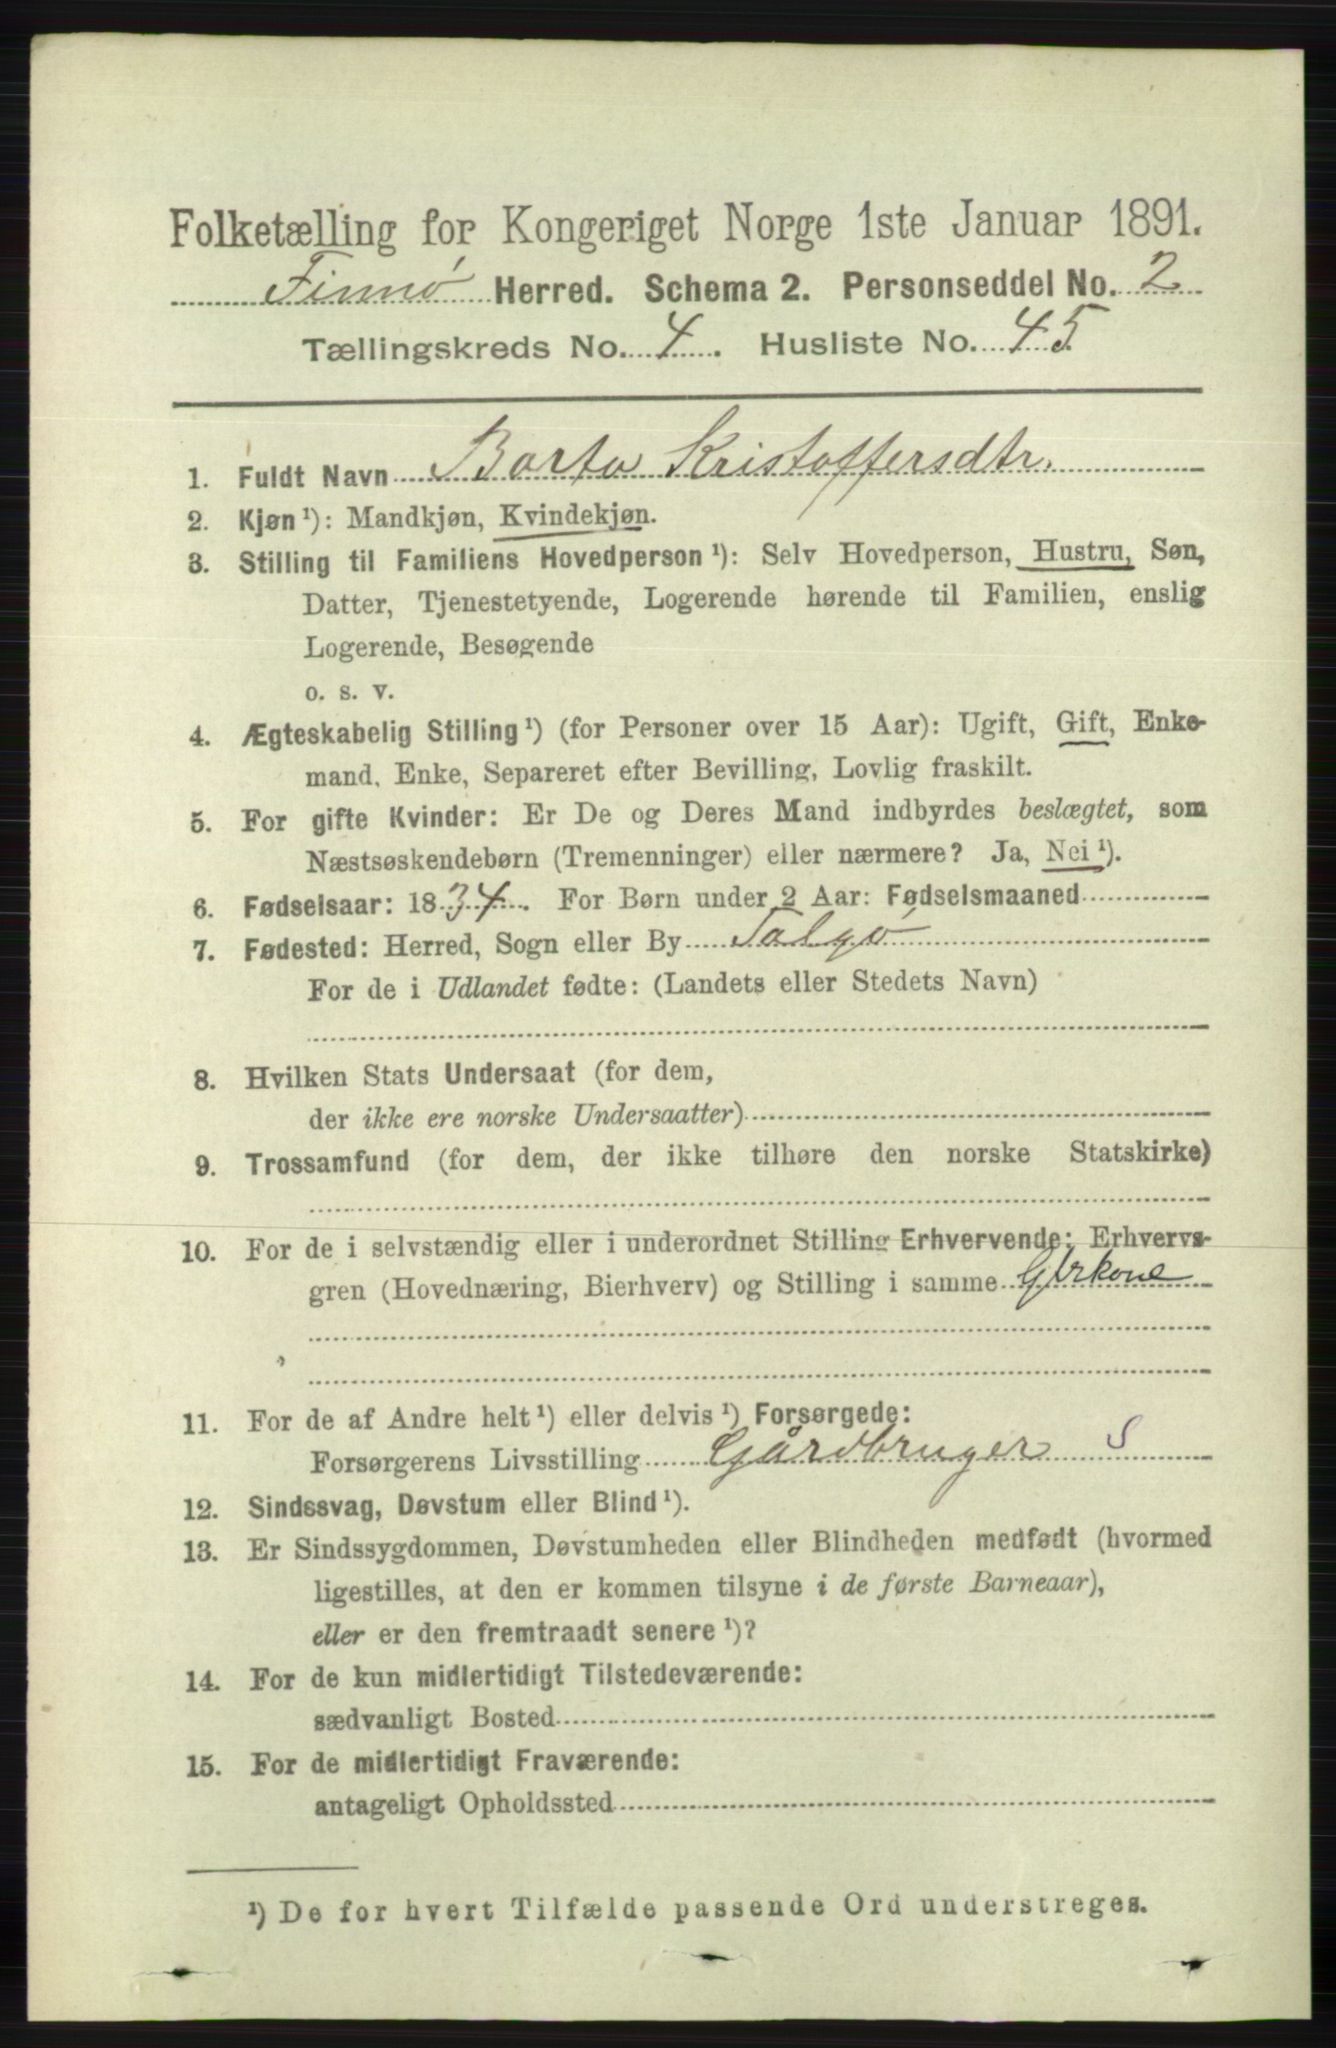 Folketælling for Kongeriget Norge 1ste Januar 1891.
Finnø Herred. Schema 2. Personseddel No. 2
Tællingskreds No. 4. Husliste No. 45
1. Fuldt Navn Barta Kristoffersdtr.
2. Kjøn ¹): Mandkjøn, Kvindekjøn.
3. Stilling til Familiens Hovedperson ¹): Selv Hovedperson, Hustru, Søn,
Datter, Tjenestetyende, Logerende hørende til Familien, enslig
Logerende, Besøgende
o. s. v.
4. Ægteskabelig Stilling ¹) (for Personer over 15 Aar): Ugift, Gift, Enke-
mand, Enke, Separeret efter Bevilling, Lovlig fraskilt.
5. For gifte Kvinder: Er De og Deres Mand indbyrdes beslægtet, som
Næstsøskendebørn (Tremenninger) eller nærmere? Ja, Nei ¹).
6. Fødselsaar: 1834. For Børn under 2 Aar: Fødselsmaaned
7. Fødested: Herred, Sogn eller By Talgø
For de i Udlandet fødte: (Landets eller Stedets Navn)
8. Hvilken Stats Undersaat (for dem,
der ikke ere norske Undersaatter)
9. Trossamfund (for dem, der ikke tilhøre den norske Statskirke)
10. For de i selvstændig eller i underordnet Stilling Erhvervende: Erhvervs-
gren (Hovednæring, Bierhverv) og Stilling i samme Gbrkone
11. For de af Andre helt ¹) eller delvis ¹) Forsørgede:
Forsørgerens Livsstilling Gårdbruger S
12. Sindssvag, Døvstum eller Blind ¹).
13. Er Sindssygdommen, Døvstumheden eller Blindheden medfødt (hvormed
ligestilles, at den er kommen tilsyne i de første Barneaar),
eller er den fremtraadt senere ¹)?
14. For de kun midlertidigt Tilstedeværende:
sædvanligt Bosted
15. For de midlertidigt Fraværende:
antageligt Opholdssted
¹) De for hvert Tilfælde passende Ord understreges.